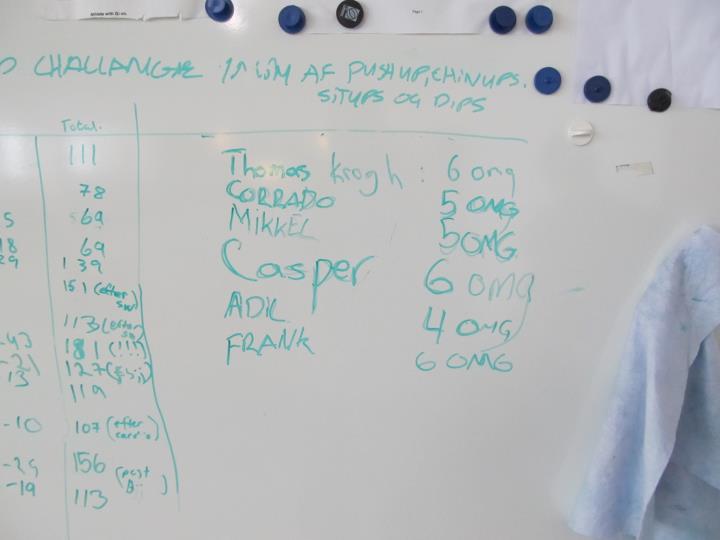 CHALLANGE 1 AF PUSHUP, CHINUPS.
SITUPS OG DIPS
Total.
111
78
5 69
18 69
29 139
151 (efter
113 (efter
-43 181 (!!!)
-21 127
-13 119
-10 107 (efter
cardio)
-29 156 (post
-19 113
Thomas Krogh : 6 omg
CORRADO 5 OMG
MIKKEL 5 OMG
Casper 6 omg
ADIL 4 OMG
FRANK 6 OMG
Page 1